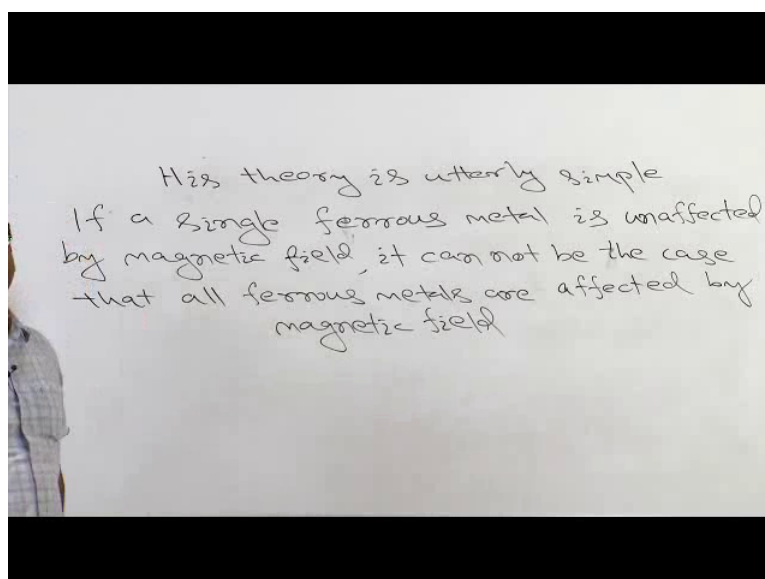 His theory is utterly simple
If a single ferrous metal is unaffected
by magnetic field, it can not be the case
that all ferrous metals are affected by
magnetic field